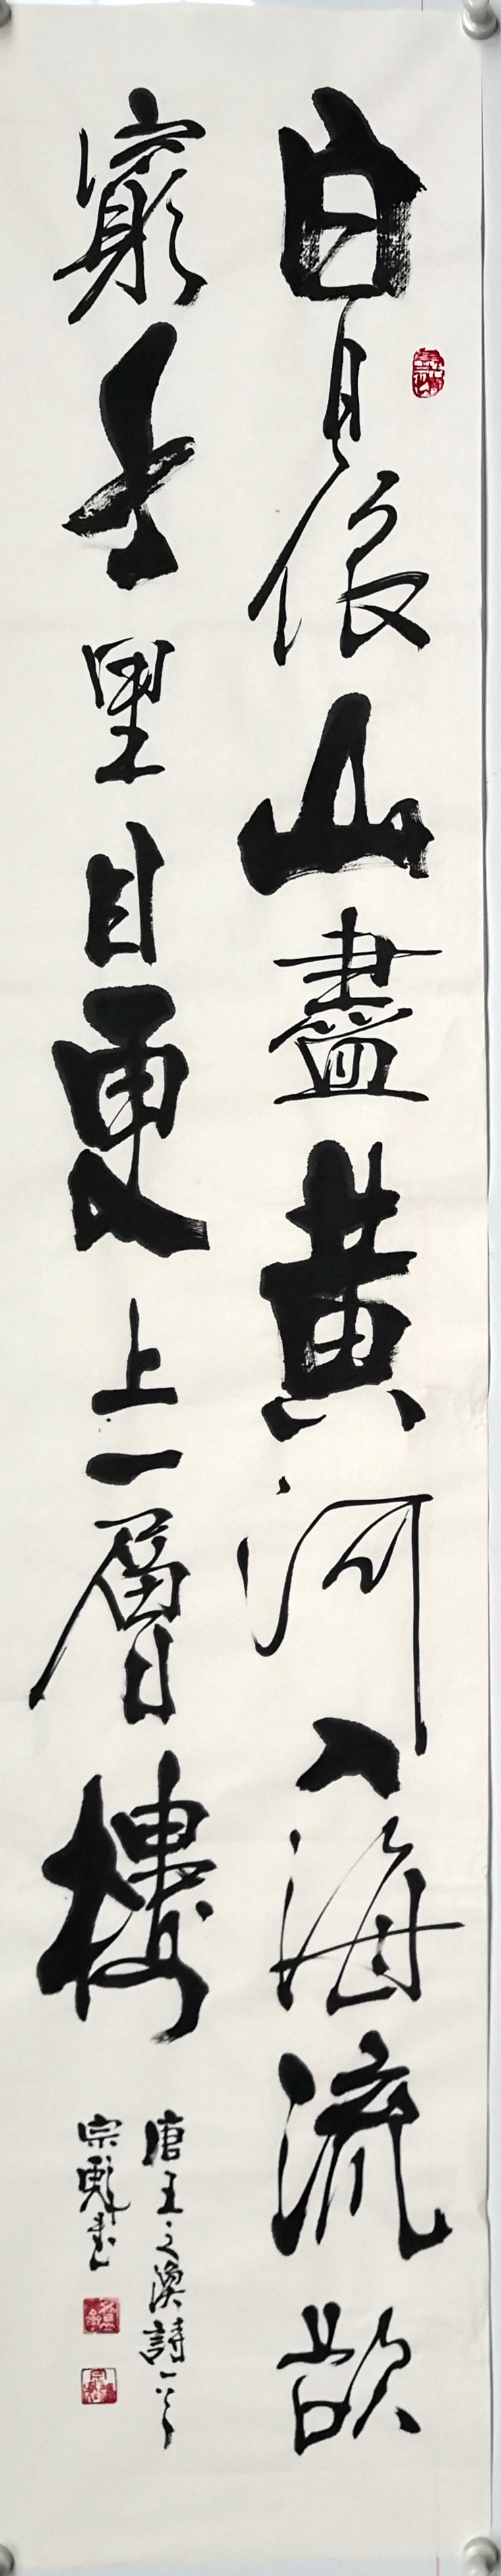 白日依山盡黄河入海流欲
窮千里目更上一層樓
唐王之渙詩一首
宗彪书